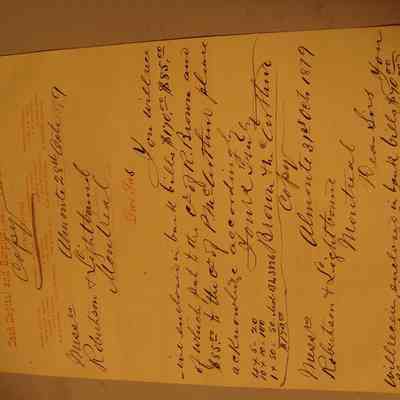 Copy
Almonte 28th Oct 1879
Messrs
Robertson & Lightbound
Montreal
Dear Sirs
You will rec
ive enclosed in bank bills $170.00 $85.00
of which put to the c/- of R Brown and
$85.00 to the c/- of P McArthur please
acknowledge accordingly
Yours Truly
Brown McArthur
4 x 5 - 20
10 x 10 - 100
1 x 50 - 50
$170.00
Copy
Almonte 31st Oct 1879
Messrs
Robertson & Lightbound
Montreal
Dear Sirs You
will rec enclosed in bank bills $70.00